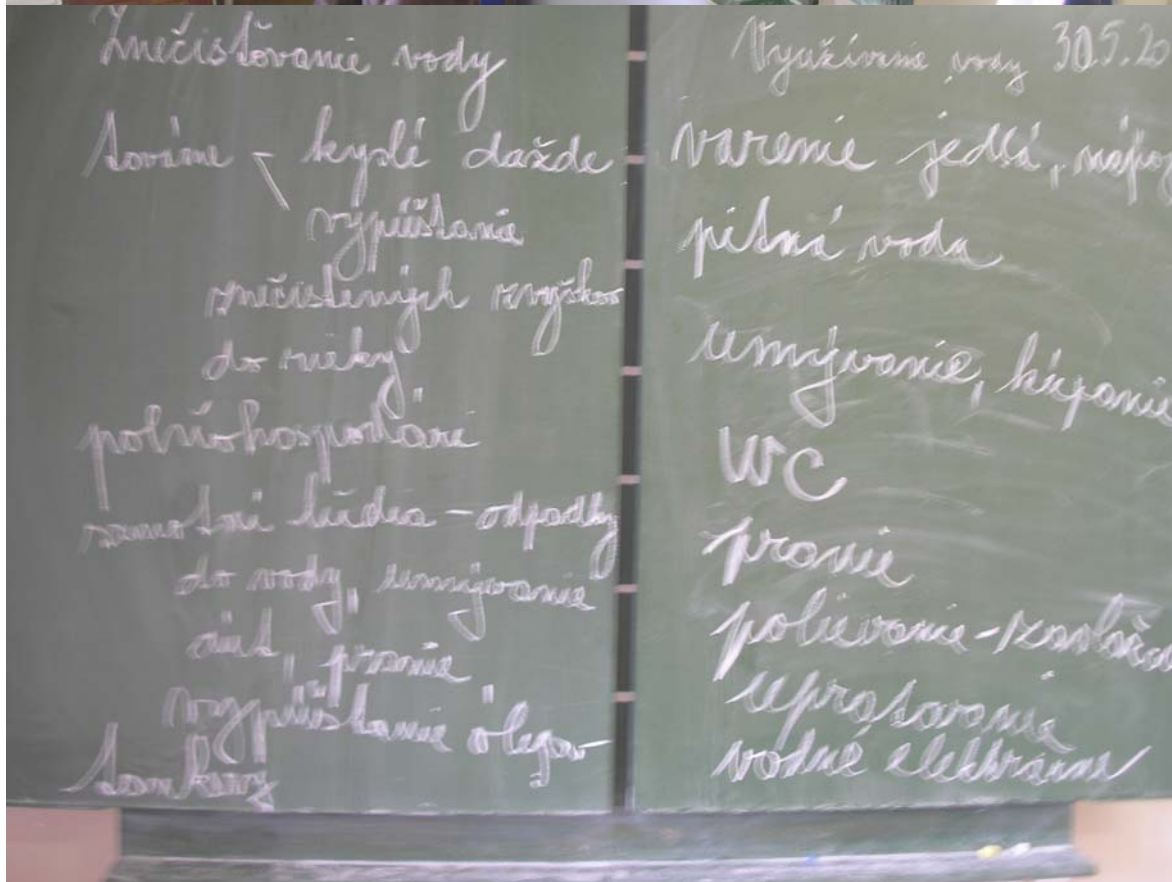 Znečisťovanie vody
továrne - kyslé dažde
vypúšťanie
znečistených zvyškov
do rieky
poľnohospodári
samotní ľudia - odpadky
do vody, umývanie
áut, pranie
vypúšťanie olejov
tankery
Využívanie vody 30.5.20
varenie jedlá, nápoj
pitná voda
umývanie, kúpanie
WC
pranie
polievanie -
upratovanie
vodné elektrárne